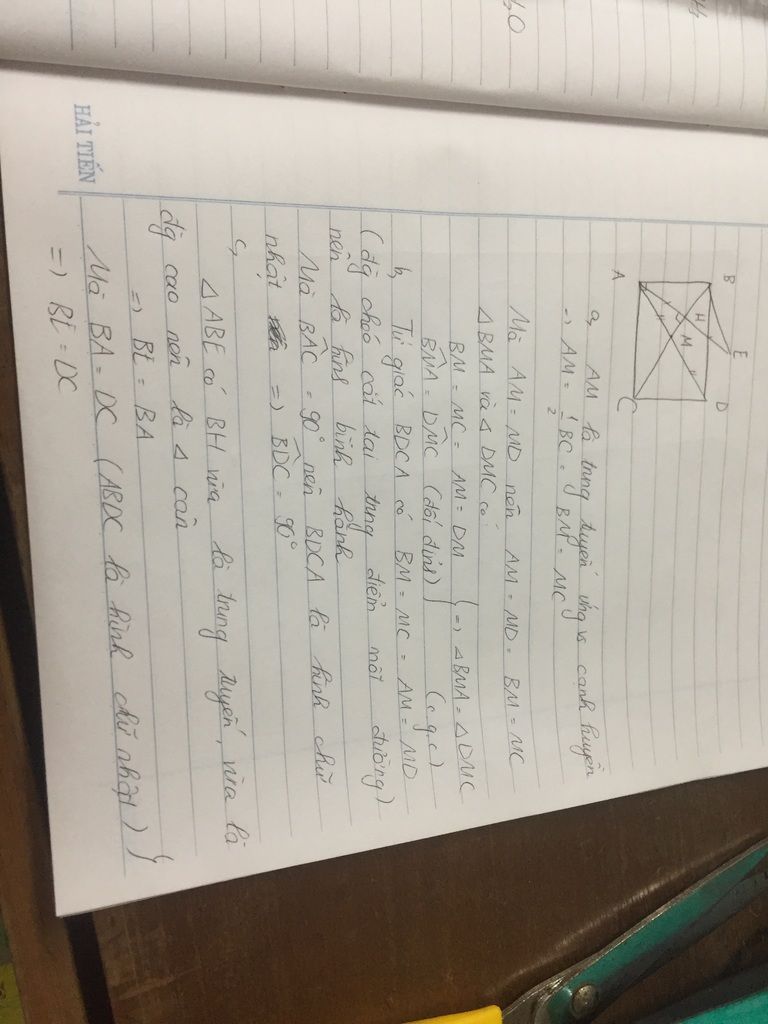 B
E
D
H
M
A
C
a, AM là trung tuyến ứng vs cạnh huyền
=> AM = 1/2 BC = BM = MC
Mà AM = MD nên AM = MD = BM = MC
△ BMA và △ DMC có:
BM = MC = AM = DM } => △ BMA = △ DMC
BMA = DMC (đối đỉnh) } (c.g.c)
b, Tứ giác BDCA có BM = MC = AM = MD
(đg chéo cắt tại trung điểm mỗi đường)
nên là hình bình hành
Mà BAC = 90° nên BDCA là hình chữ
nhật => BDC = 90°
c,
△ ABE có BH vừa là trung tuyến, vừa là
đg cao nên là △ cân
=> BE = BA
Mà BA = DC (ABDC là hình chữ nhật) }
=> BE = DC
HẢI TIẾN